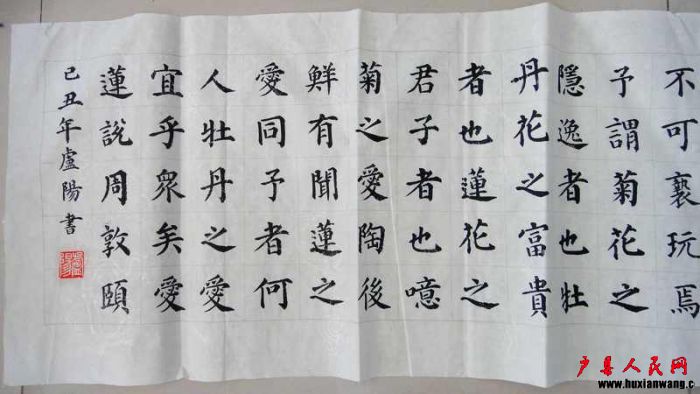 不可褻玩焉
予謂菊花之
隱逸者也牡
丹花之富貴
者也蓮花之
君子者也噫
菊之愛陶後
鮮有聞蓮之
愛同予者何
人牡丹之愛
宜乎衆矣愛
蓮說周敦頤
己丑年盧陽書
户县人民网
www.huxianwang.c